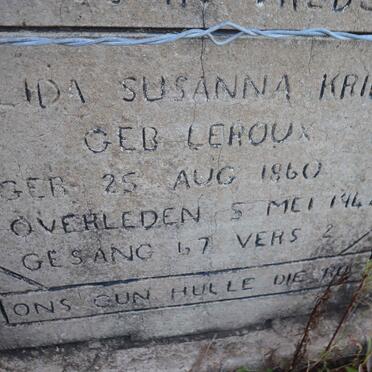 LIDA SUSANNA
GEB LEROUX
GEB 25 AUG 1860
OVERLEDEN 5 MEI
GESANG 67 VERS 2
ONS GUN HULLE DIE